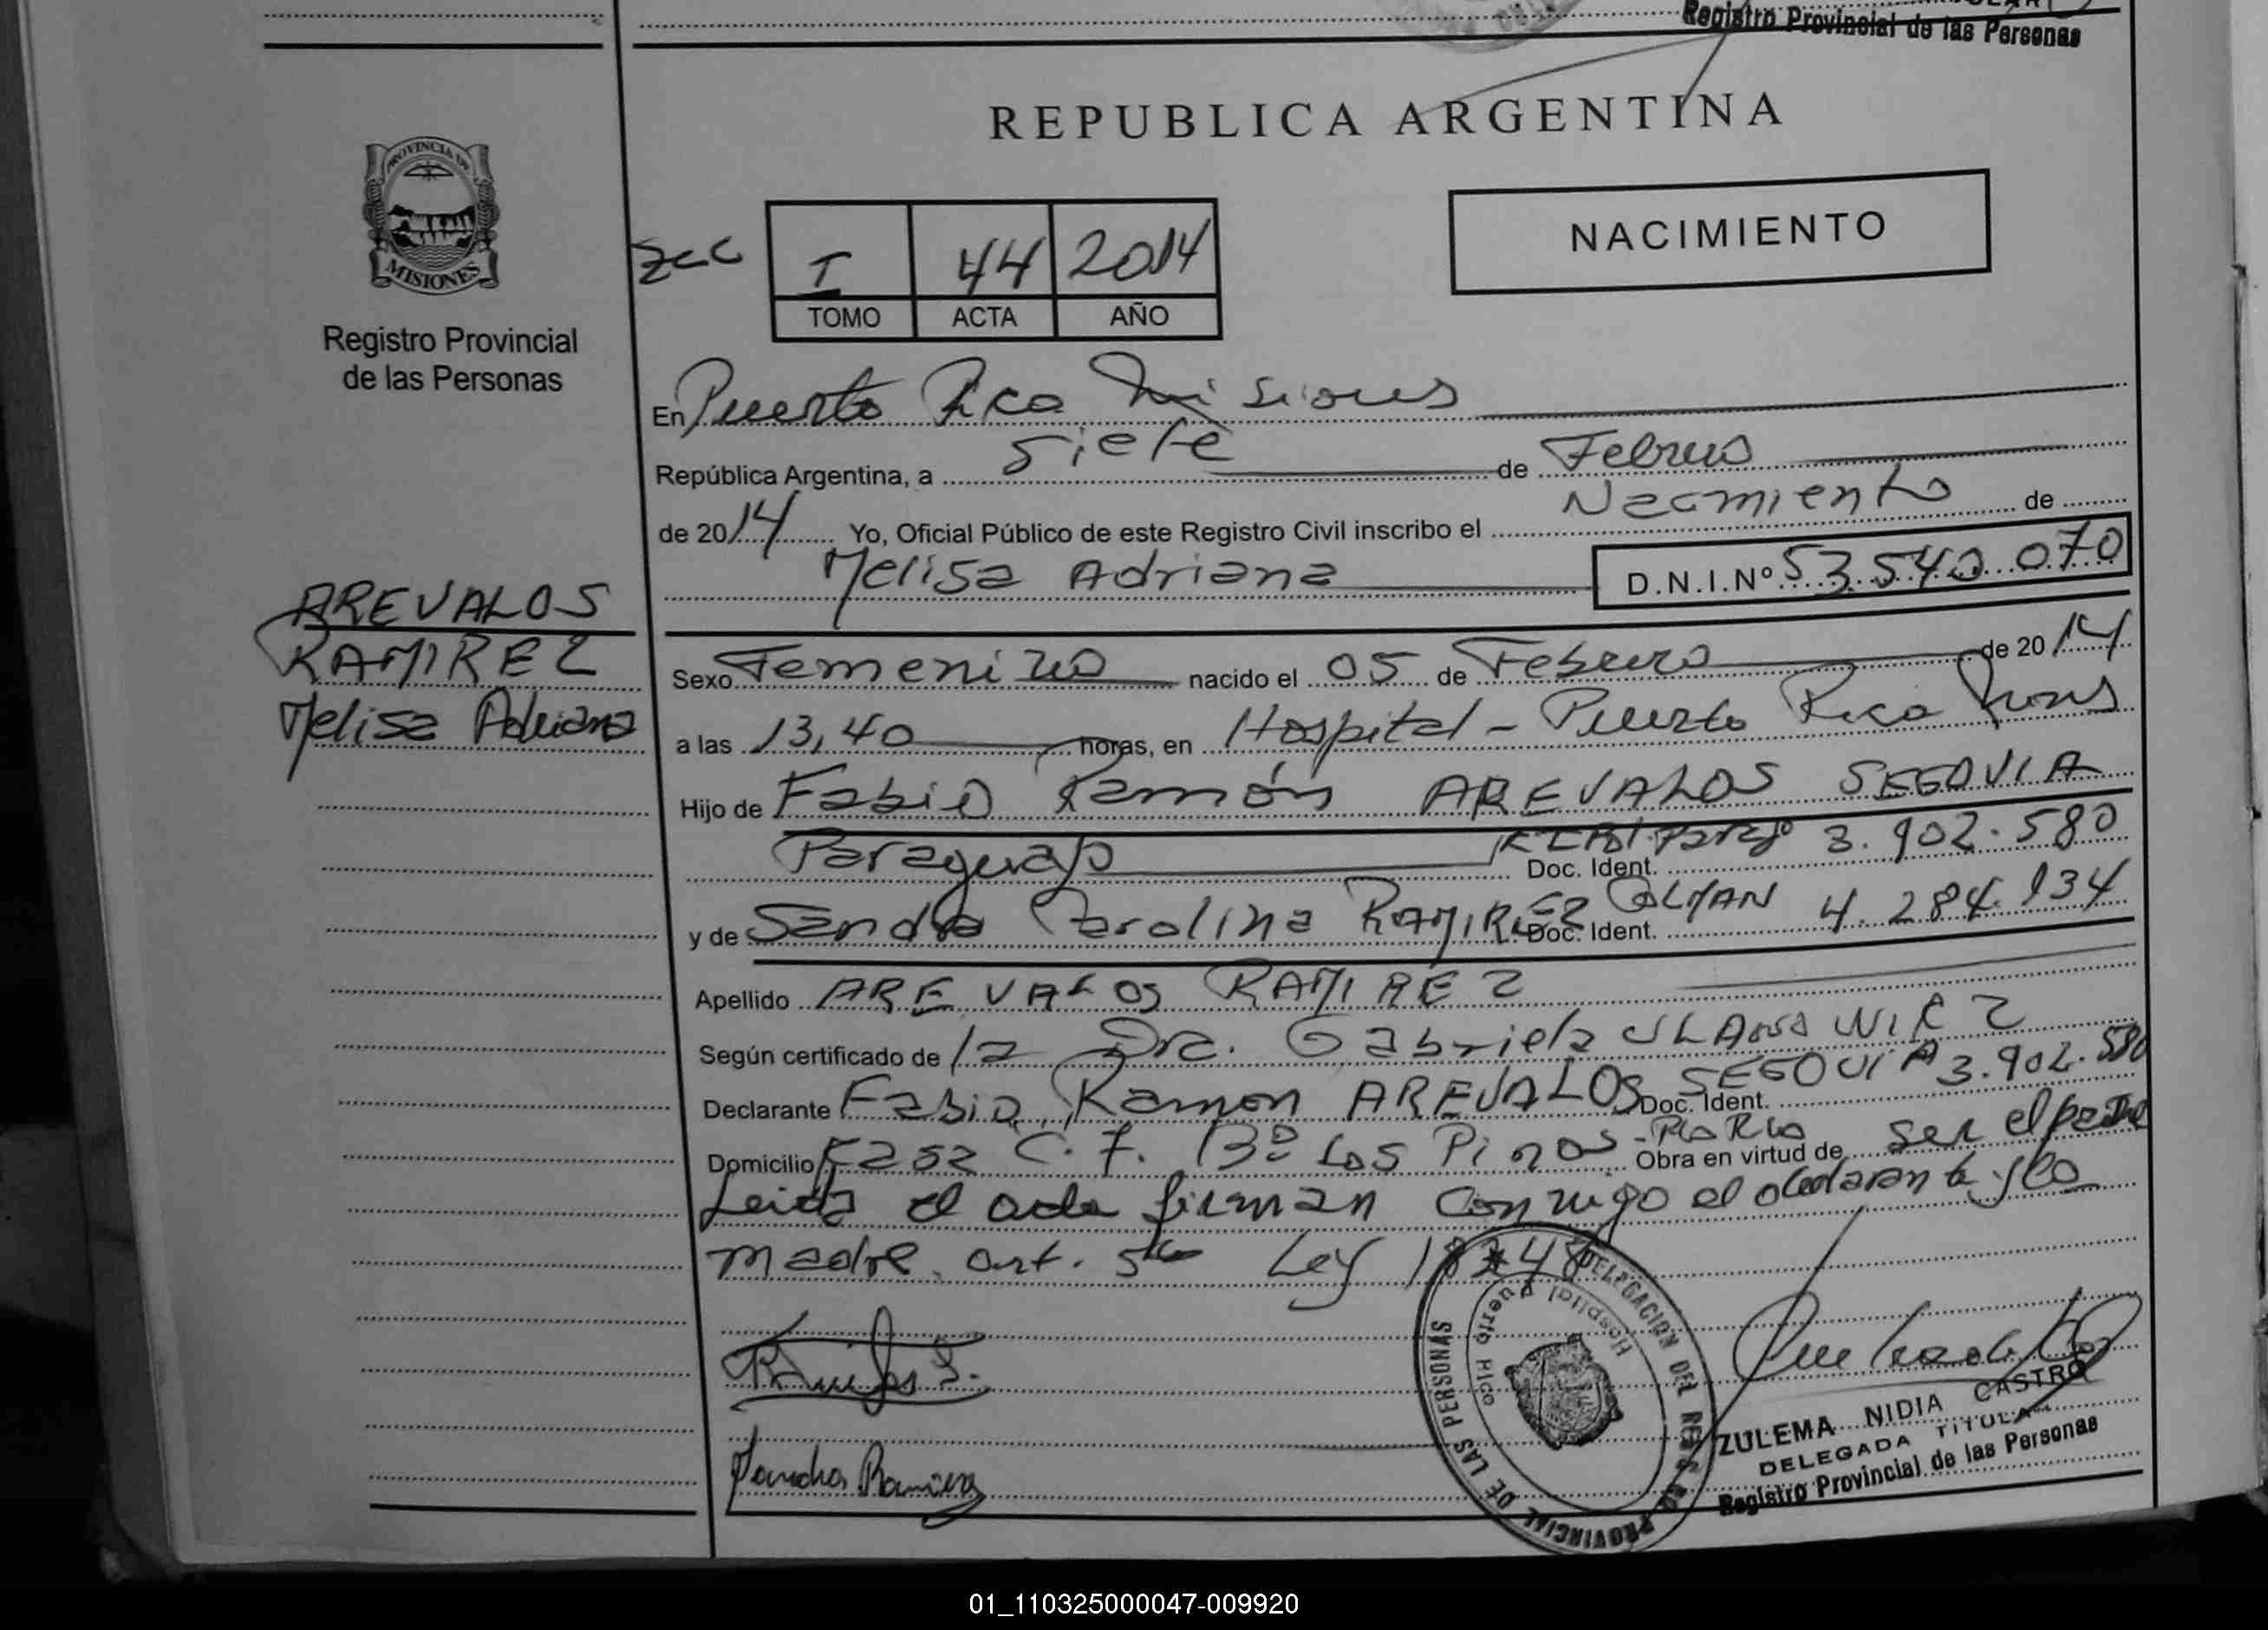 Registro Provincial de las Personas
REPUBLICA ARGENTINA
PROVINCIA DE
MISIONES
Registro Provincial
de las Personas
NACIMIENTO
I 44 2014
TOMO ACTA AÑO
En Puerto Rico Misiones
República Argentina, a siete de Febrero
de 2014 Yo, Oficial Público de este Registro Civil inscribo el Nacimiento de
Melisa Adriana D.N.I.Nº 53.540.070
AREVALOS
RAMIREZ
Melisa Adriana
Sexo Femenino nacido el 05 de Febrero de 2014
a las 13,40 horas, en Hospital - Puerto Rico
Hijo de Fabio Ramón AREVALOS SEGOVIA
Paraguayo Doc. Ident. 3.902.580
y de Sandra Carolina RAMIREZ COLMAN Doc. Ident. 4.284.134
Apellido AREVALOS RAMIREZ
Según certificado de la Dra. Gabriela
Declarante Fabio Ramon AREVALOS SEGOVIA Doc. Ident. 3.902.580
Domicilio Casa C.F. Bº Los Pinos - Pto Rico Obra en virtud de ser el padre
Leida el acta firman conmigo el declarante y la
madre. art. 5to Ley 18248
DELEGACION DEL REGISTRO PROVINCIAL DE LAS PERSONAS
Hospital Puerto Rico
Sandra Ramirez
ZULEMA NIDIA CASTRO
DELEGADA TITULAR
Registro Provincial de las Personas
01_110325000047-009920